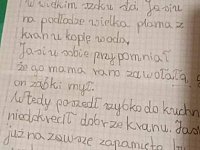 w wielkim szoku dał Jasiu
na podłodze wielka plama z
kranu kapie woda.
Jasiu sobie przypomniał
że go mama rano zawołała,
on ząbki mył.
Wtedy poszedł szybko do kuchni
niedokręcił dobrze kranu. Jaś
już na zawsze zapamięta